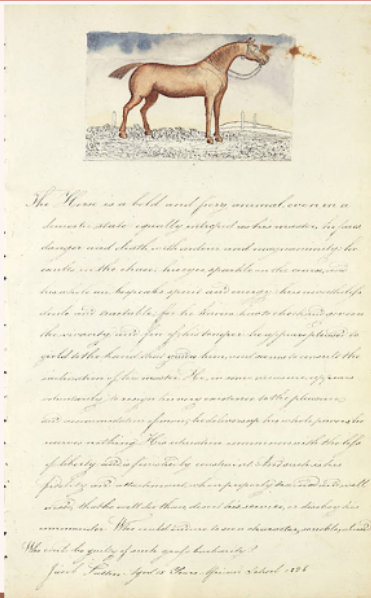 The Horse is a bold and fiery animal, even in a
domestic state equally intrepid as his master, he faces
danger and death with ardour and magnanimity. he
in the chace. his eyes sparkle in the course, and
his whole air bespeaks spirit and energy. he is nevertheless
docile and tractable, for he knows how to check and govern
the vivacity and fire of his temper. he appears pleased to
yield to the hand that guides him, and seems to consult the
inclination of his master. He, in some measure, appears
voluntarily to resign his very existence to the pleasure
and accommodation of man; he delivers up his whole powers; he
reserves nothing. His education commences with the loss
of liberty, and is finished by constraint. And such is his
fidelity and attachment, when properly trained and well
used, that he will die than desert his service, or disobey his
commander. Who could injure so
Who will be guilty of such gross barbarity?
Jacob aged 15 Years School 1826